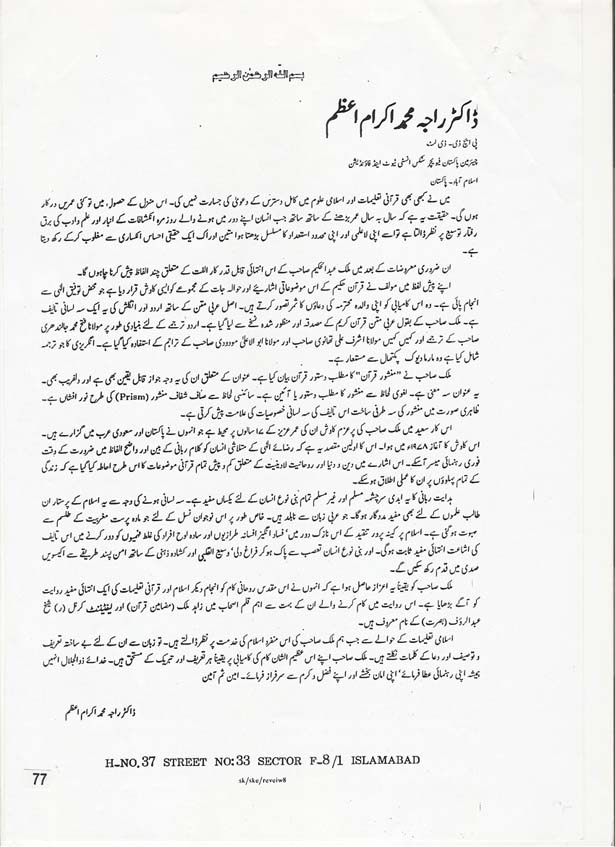 بسم اللہ الرحمٰن الرحیم
ڈاکٹر راجہ محمد اکرام اعظم
پی ایچ ڈی۔ ڈی لٹ
چیئرمین پاکستان فیوچر سٹکس انسٹی ٹیوٹ اینڈ فاؤنڈیشن
اسلام آباد۔ پاکستان
میں نے کبھی بھی قرآنی تعلیمات اور اسلامی علوم میں کامل دسترس کے دعویٰ کی جسارت نہیں کی۔ اس منزل کے حصول، میں تو کئی عمریں درکار
ہوں گی۔ حقیقت یہ ہے کہ سال بہ سال عمر بڑھنے کے ساتھ ساتھ جب انسان اپنے دور میں ہونے والے روز مرہ انکشافات کے انبار اور علم و ادب کی برق
رفتار توسیع پر نظر ڈالتا ہے تو اسے اپنی لاعلمی اور اپنی محدود استعداد کا مسلسل بڑھتا ہوا متین اوراک ایک حقیقی احساس انکساری سے مغلوب کرکے رکھ دیتا
ہے۔
ان ضروری معروضات کے بعد میں ملک عبدالحکیم صاحب کے اس انتہائی قابل قدر کار الفت کے متعلق چند الفاظ پیش کرنا چاہوں گا۔
اپنے پیش لفظ میں مولف نے قرآن حکیم کے اس موضوعاتی اشاریے اور حوالہ جات کے مجموعے کو ایسی کاوش قرار دیا ہے جو محض توفیق الٰہی سے
انجام پائی ہے۔ وہ اس کامیابی کو اپنی والدہ محترمہ کی دعاؤں کا ثمر تصور کرتے ہیں۔ اصل عربی متن کے ساتھ اردو اور انگلش کی یہ ایک سہ لسانی تالیف
ہے۔ ملک صاحب کے بقول عربی متن قرآن کریم کے مصدقہ اور منظور شدہ نسخے سے لیا گیا ہے۔ اردو ترجمے کے لئے بنیادی طور پر مولانا فتح محمد جالندھری
صاحب کے ترجمے اور کہیں کہیں مولانا اشرف علی تھانوی صاحب اور مولانا ابوالاعلیٰ مودودی صاحب کے تراجم سے استفادہ کیا گیا ہے۔ انگریزی کا جو ترجمہ
شامل کیا ہے وہ مارماڈیوک پکتھال سے مستعار ہے۔
ملک صاحب نے "منشور قرآن" کا مطلب دستور قرآن بیان کیا ہے۔ عنوان کے متعلق ان کی یہ وجہ جواز قابل یقین بھی ہے اور دلفریب بھی۔
یہ عنوان سہ معنی ہے۔ لغوی لحاظ سے منشور کا مطلب دستور یا آئین ہے۔ سائنسی لحاظ سے صاف شفاف منشور (Prism) کی طرح نور افشاں ہے۔
ظاہری صورت میں منشور کی سہ طرفی ساخت اس تالیف کی سہ لسانی خصوصیات کی علامت پیش کرتی ہے۔
اس کار سعید میں ملک صاحب کی پرعزم کاوش ان کی عمر عزیز کے ۱۷ سالوں پر محیط ہے جو انہوں نے پاکستان اور سعودی عرب میں گزارے ہیں۔
اس کاوش کا آغاز ۱۹۷۸ء میں ہوا۔ اس کا اولین مقصد یہ ہے کہ رضائے الٰہی کے متلاشی انسان کو کلام ربانی کے بین اور واضح الفاظ میں ضرورت کے وقت
فوری رہنمائی میسر آسکے۔ اس اشاریے میں دین و دنیا اور روحانیت لادینیت کے متعلق کم و بیش تمام قرآنی موضوعات کا اس طرح احاطہ کیا گیا ہے کہ زندگی
کے تمام پہلوؤں پر ان کا عملی اطلاق ہو سکے۔
ہدایت ربانی کا یہ ابدی سرچشمہ مسلم اور غیر مسلم تمام بنی نوع انسان کے لئے یکساں مفید ہے۔ سہ لسانی ہونے کی وجہ سے یہ اسلام کے پرستار ان
طالب علموں کے لئے بھی مفید مددگار ہو گا۔ جو عربی زبان سے نابلد ہیں۔ خاص طور پر اس نوجوان نسل کے لئے جو مادہ پرست مغربیت کے طلسم سے
مبہوت ہو گئی ہے۔ اسلام پر کینہ پرور تنقید کے اس نازک دور میں' فساد انگیز افسانہ طرازیوں اور سادہ لوح افراد کی غلط فہمیوں کو دور کرنے میں اس تالیف
کی اشاعت انتہائی مفید ثابت ہوگی۔ اور بنی نوع انسان تعصب سے پاک ہو کر فراخ دلی' وسیع القلبی اور کشادہ ذہنی کے ساتھ امن پسند طریقے سے اکیسویں
صدی میں قدم رکھ سکیں گے۔
ملک صاحب کو یقیناً یہ اعزاز حاصل ہوا ہے کہ انہوں نے اس مقدس روحانی کام کو انجام دیکر اسلام اور قرآنی تعلیمات کی ایک انتہائی مفید روایت
کو آگے بڑھایا ہے۔ اس روایت میں کام کرنے والے ان کے بہت سے اہم قلم اصحاب میں زاہد ملک (مضامین قرآن) اور لیفٹیننٹ کرنل (ر) شیخ
عبدالرؤف (بصرت) کے نام معروف ہیں۔
اسلامی تعلیمات کے حوالے سے جب ہم ملک صاحب کی اس منفرد اسلام کی خدمت پر نظر ڈالتے ہیں۔ تو زبان سے ان کے لئے بے ساختہ تعریف
و توصیف اور دعا کے کلمات نکلتے ہیں۔ ملک صاحب اپنے اس عظیم الشان کام کی کامیابی پر یقیناً ہر تعریف اور تبریک کے مستحق ہیں۔ خدائے ذوالجلال انہیں
ہمیشہ اپنی رہنمائی عطا فرمائے' اپنی امان بخشے اور اپنے فضل و کرم سے سرفراز فرمائے۔ امین ثم آمین
ڈاکٹر راجہ محمد اکرام اعظم
H-NO. 37 STREET NO: 33 SECTOR F-8/1 ISLAMABAD
77
sk/ske/reveiw8